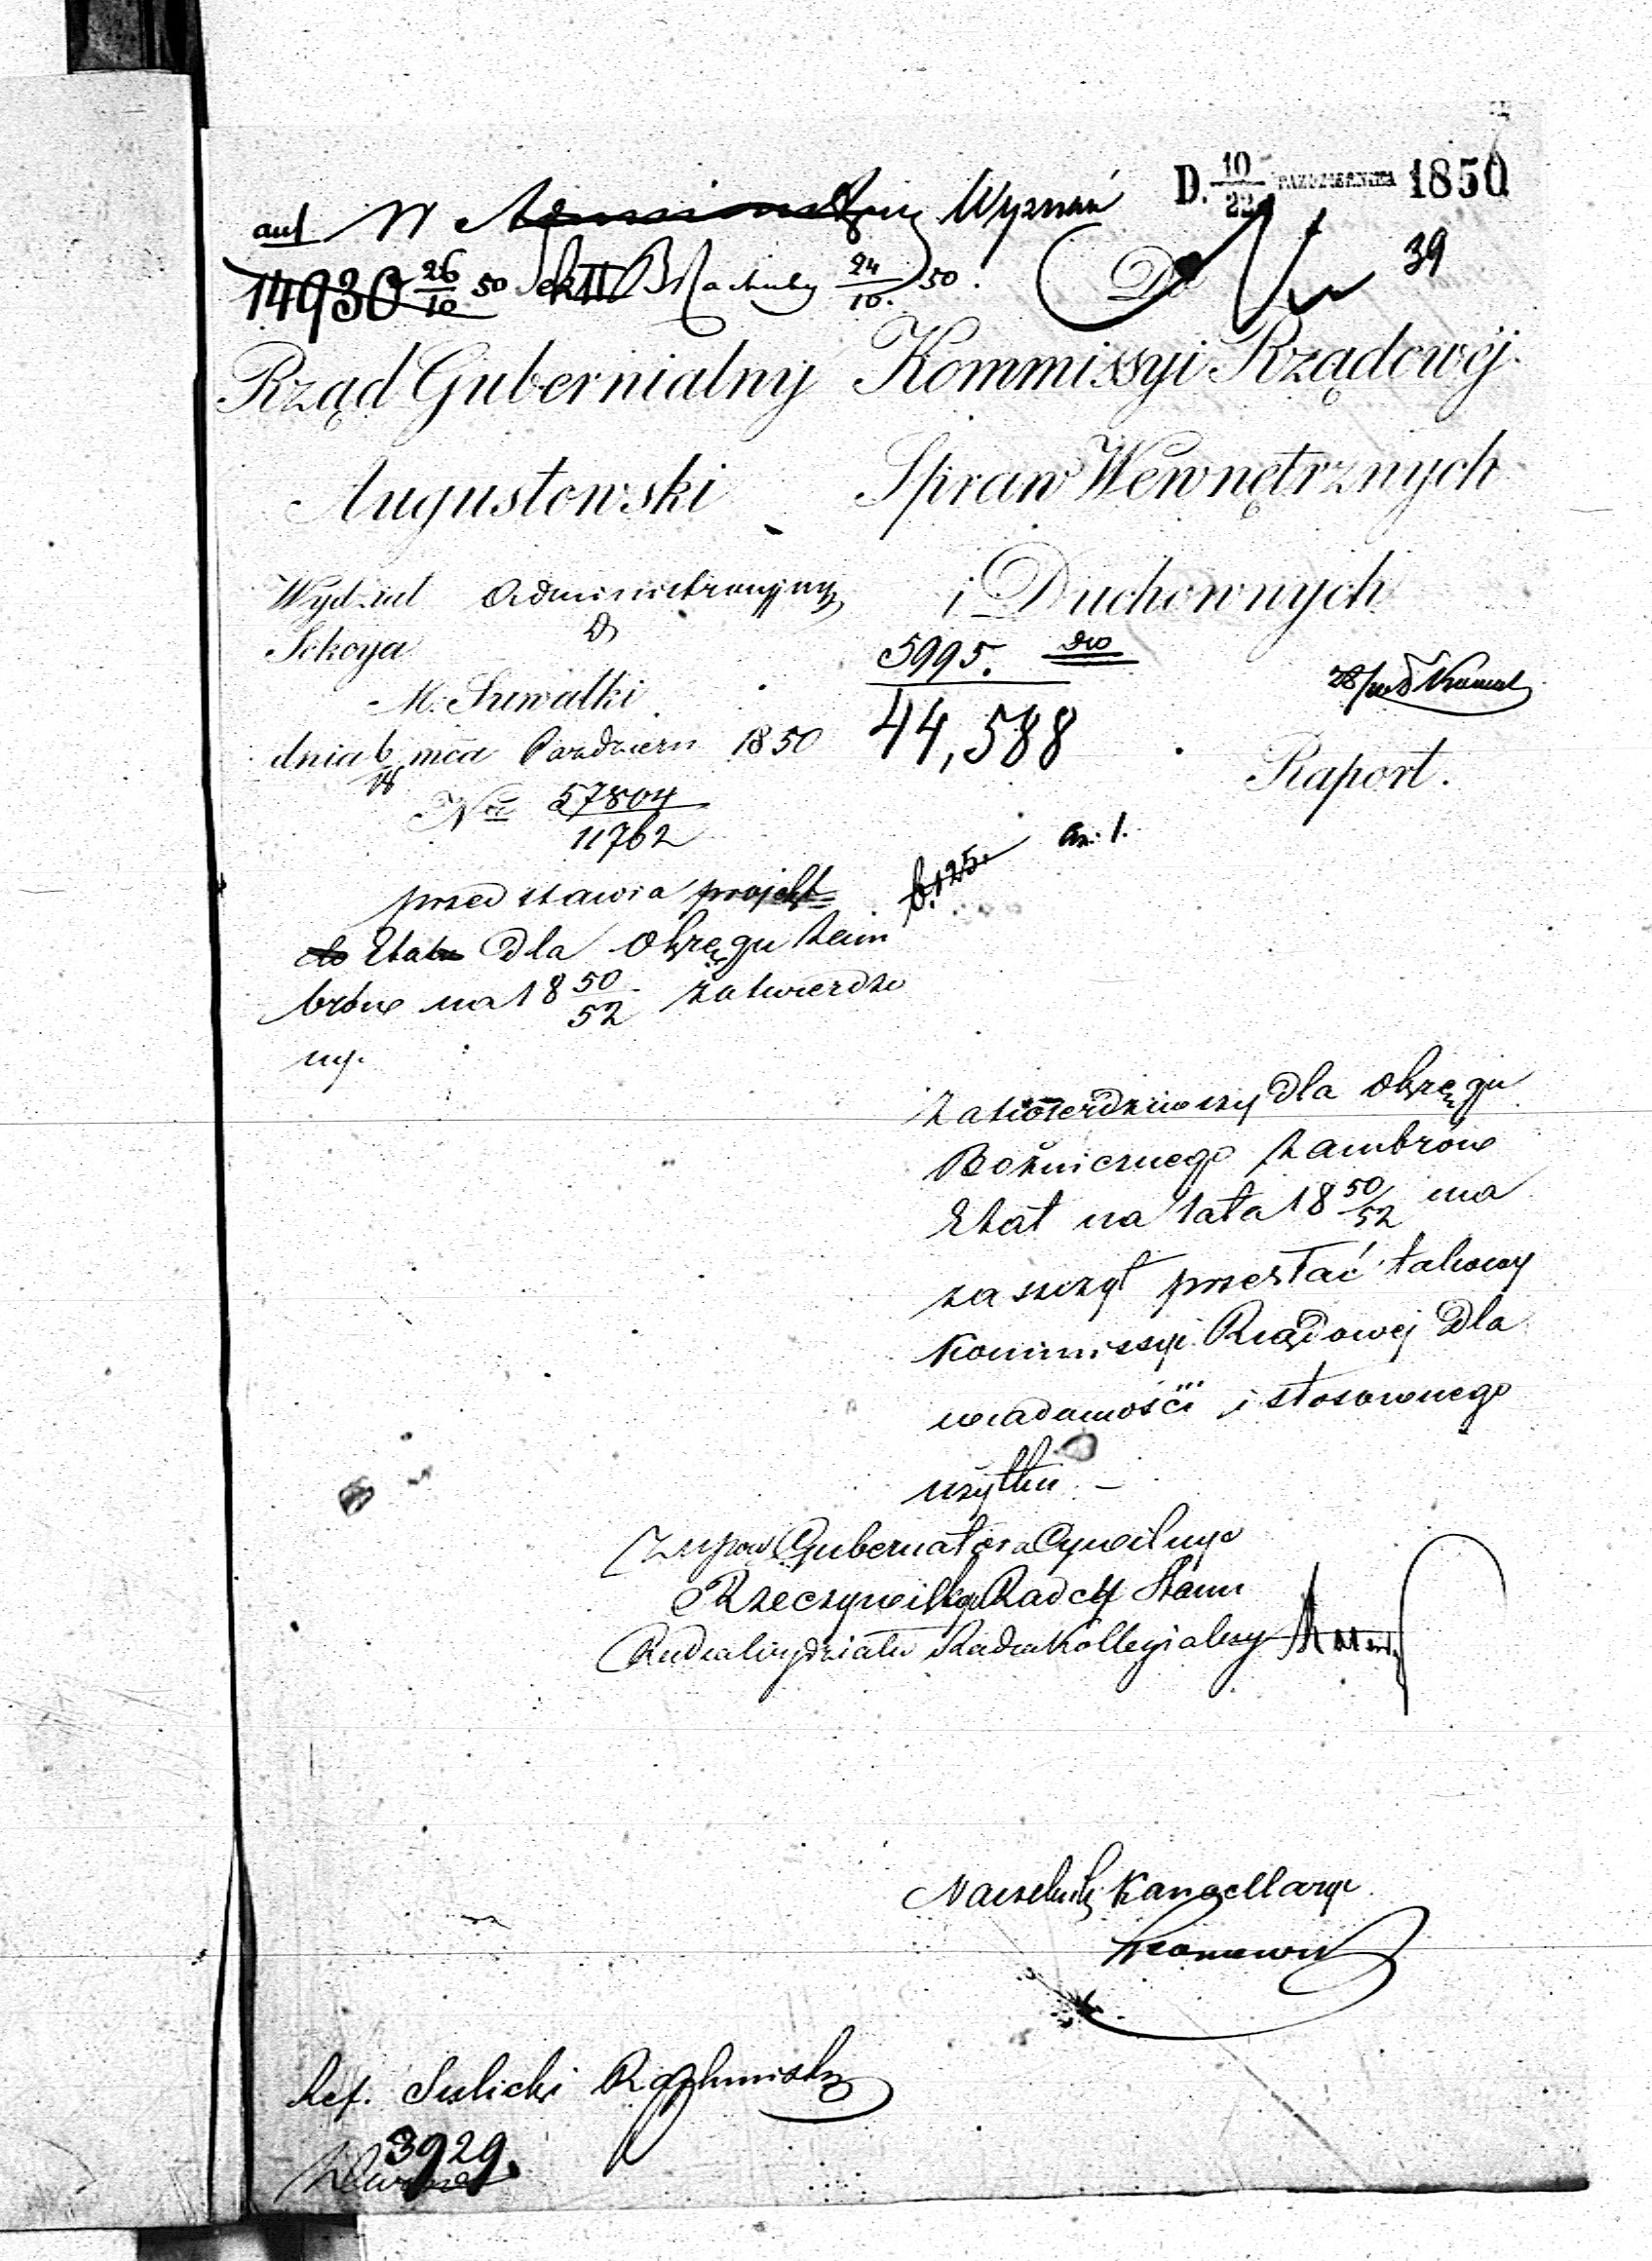 D. 10/22 PAZDZIERNIKA 1850
W Wyznań
39
14930 26/10 50 Sek III B Rachuby 24/10. 50.
Do
Rząd Gubernialny
Augustowski
Kommissyi Rządowéj
Spraw Wewnętrznych
i Duchownych
Wydział Administracyjny
Sekcya
M. Suwałki
dnia 6/18 mca Pazdziern 1850
No 57804/11762
5995.
44,588
Raport.
przedstawia projekt
do Etatu dla Okręgu Zam
brów na 18 50/52 zatwierdzo
ny.
Zatwierdziwszy dla Okręgu
Bożnicznego Zambrów
Etat na lata 18 50/52 ma
zaszczyt przesłać takowy
Kommissyi Rządowej dla
wiadomości i stosownego
użytku. –
Z up Gubernatora Cywilnego
Rzeczywistego Radcy Stanu
Radca Wydziału Radca Kollegialny
Naczelnik Kancellaryi
Ref. Sulicki
3929.